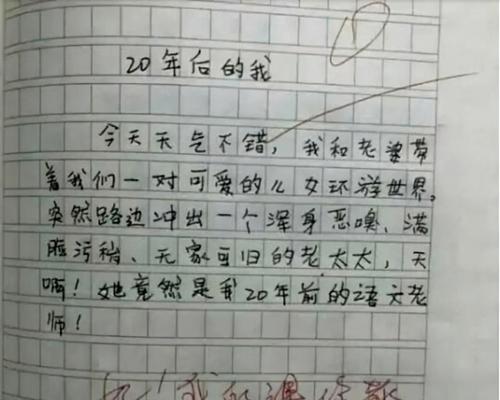 20年后的我
今天天气不错,我和老婆带
着我们一对可爱的儿女环游世界,
突然路边冲出一个浑身恶嗅、满
脸污秽、无家可归的老太太,天
啊!她竟然是我20年前的语文老
师!